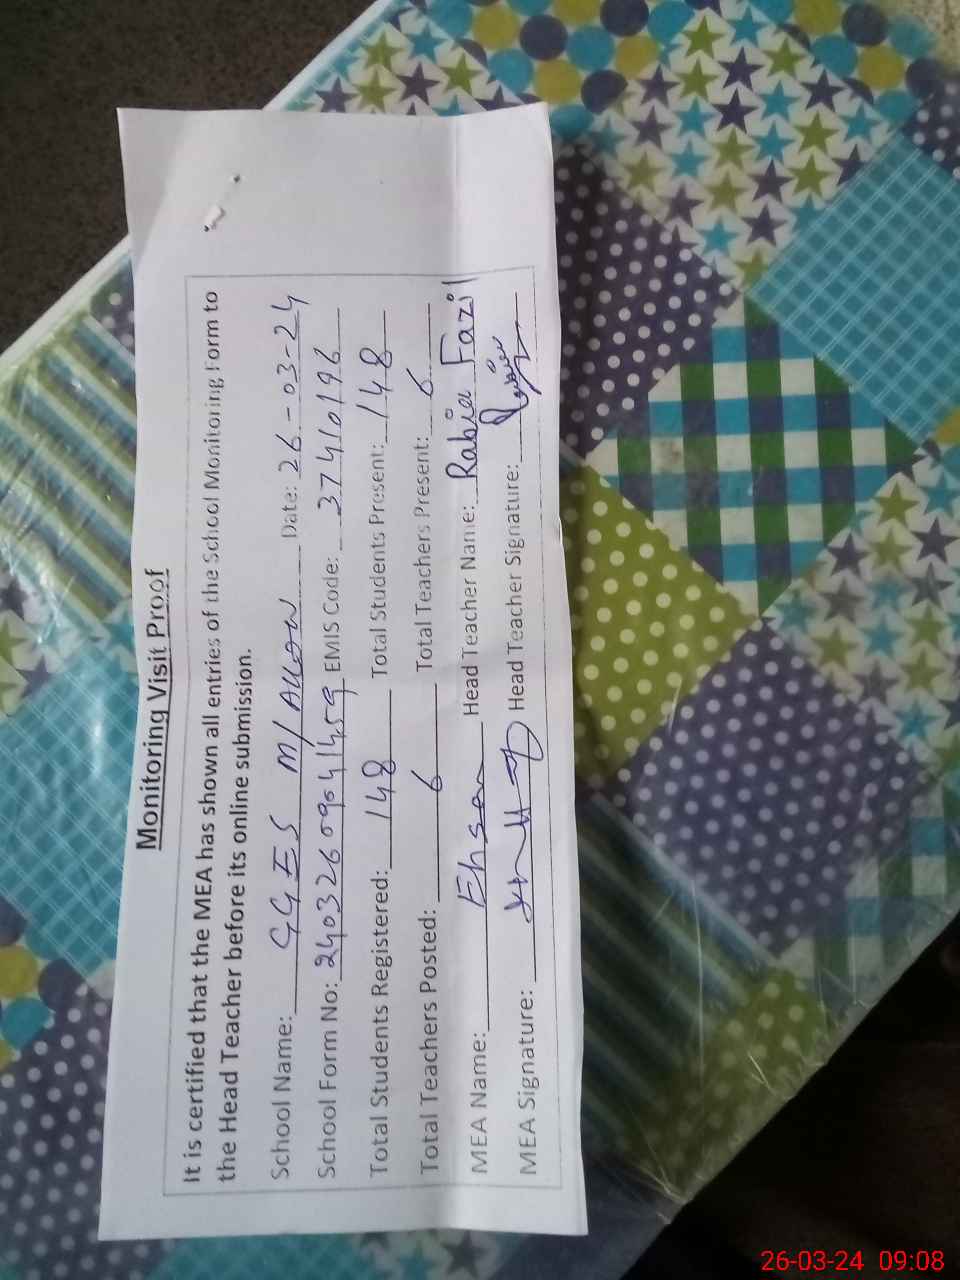 Monitoring Visit Proof
It is certified that the MEA has shown all entries of the School Monitoring Form to
the Head Teacher before its online submission.
School Name: GGES M/AWAN Date: 26-03-24
School Form No: 24032609041459 EMIS Code: 37410196
Total Students Registered: 148 Total Students Present: 148
Total Teachers Posted: 6 Total Teachers Present: 6
MEA Name: Ehsan Head Teacher Name: Rabia Fazil
MEA Signature: Head Teacher Signature:
26-03-24 09:08